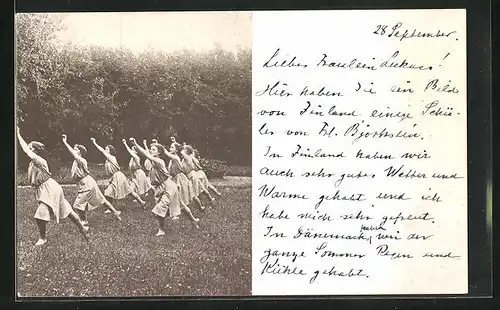 28 September.
Liebes Fräulein Lukacs!
Hier haben Sie ein Bild
von Finland einige Schü-
ler von Frl. Björksten.
In Finland haben wir
auch sehr gutes Wetter und
Wärme gehabt und ich
habe mich sehr gefreut.
In Dänemark haben wir der
ganze Sommer Regen und
Kühle gehabt.